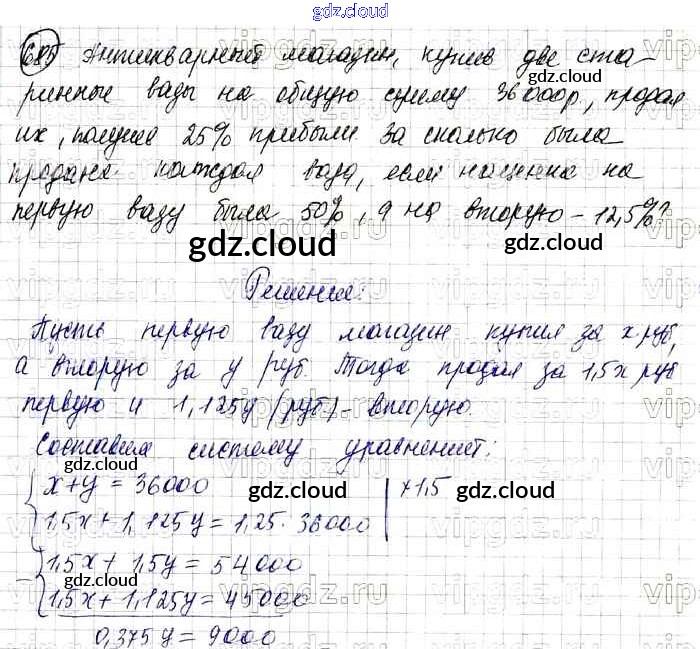 gdz.cloud
685 Антикварный магазин, купив две ста-
ринные вазы на общую сумму 36000р, продал
их, получив 25% прибыли За сколько была
продана каждая ваза, если наценка на
первую вазу была 50%, а на вторую - 12,5%?
gdz.cloud gdz.cloud
Решение:
Пусть первую вазу магазин купил за x руб,
а вторую за y руб. Тогда продал за 1,5x руб
первую и 1,125y (руб) - вторую.
Составим систему уравнений:
x+y = 36000 | ×1,5
1,5x + 1,125y = 1,25 · 36000
1,5x + 1,5y = 54000
1,5x + 1,125y = 45000
0,375y = 9000